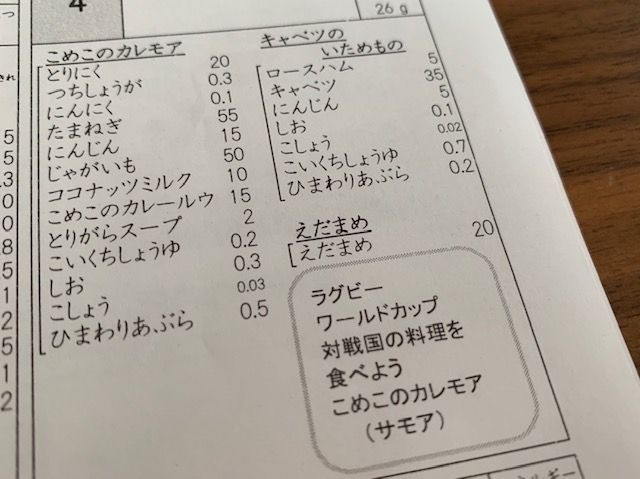 4
26g
こめこのカレモア
とりにく 20
つちしょうが 0.3
にんにく 0.1
たまねぎ 55
にんじん 15
じゃがいも 50
ココナッツミルク 10
こめこのカレールウ 15
とりがらスープ 2
こいくちしょうゆ 0.2
しお 0.3
こしょう 0.03
ひまわりあぶら 0.5
キャベツの
いためもの
ロースハム 5
キャベツ 35
にんじん 5
しお 0.1
こしょう 0.02
こいくちしょうゆ 0.7
ひまわりあぶら 0.2
えだまめ
えだまめ 20
ラグビー
ワールドカップ
対戦国の料理を
食べよう
こめこのカレモア
(サモア)